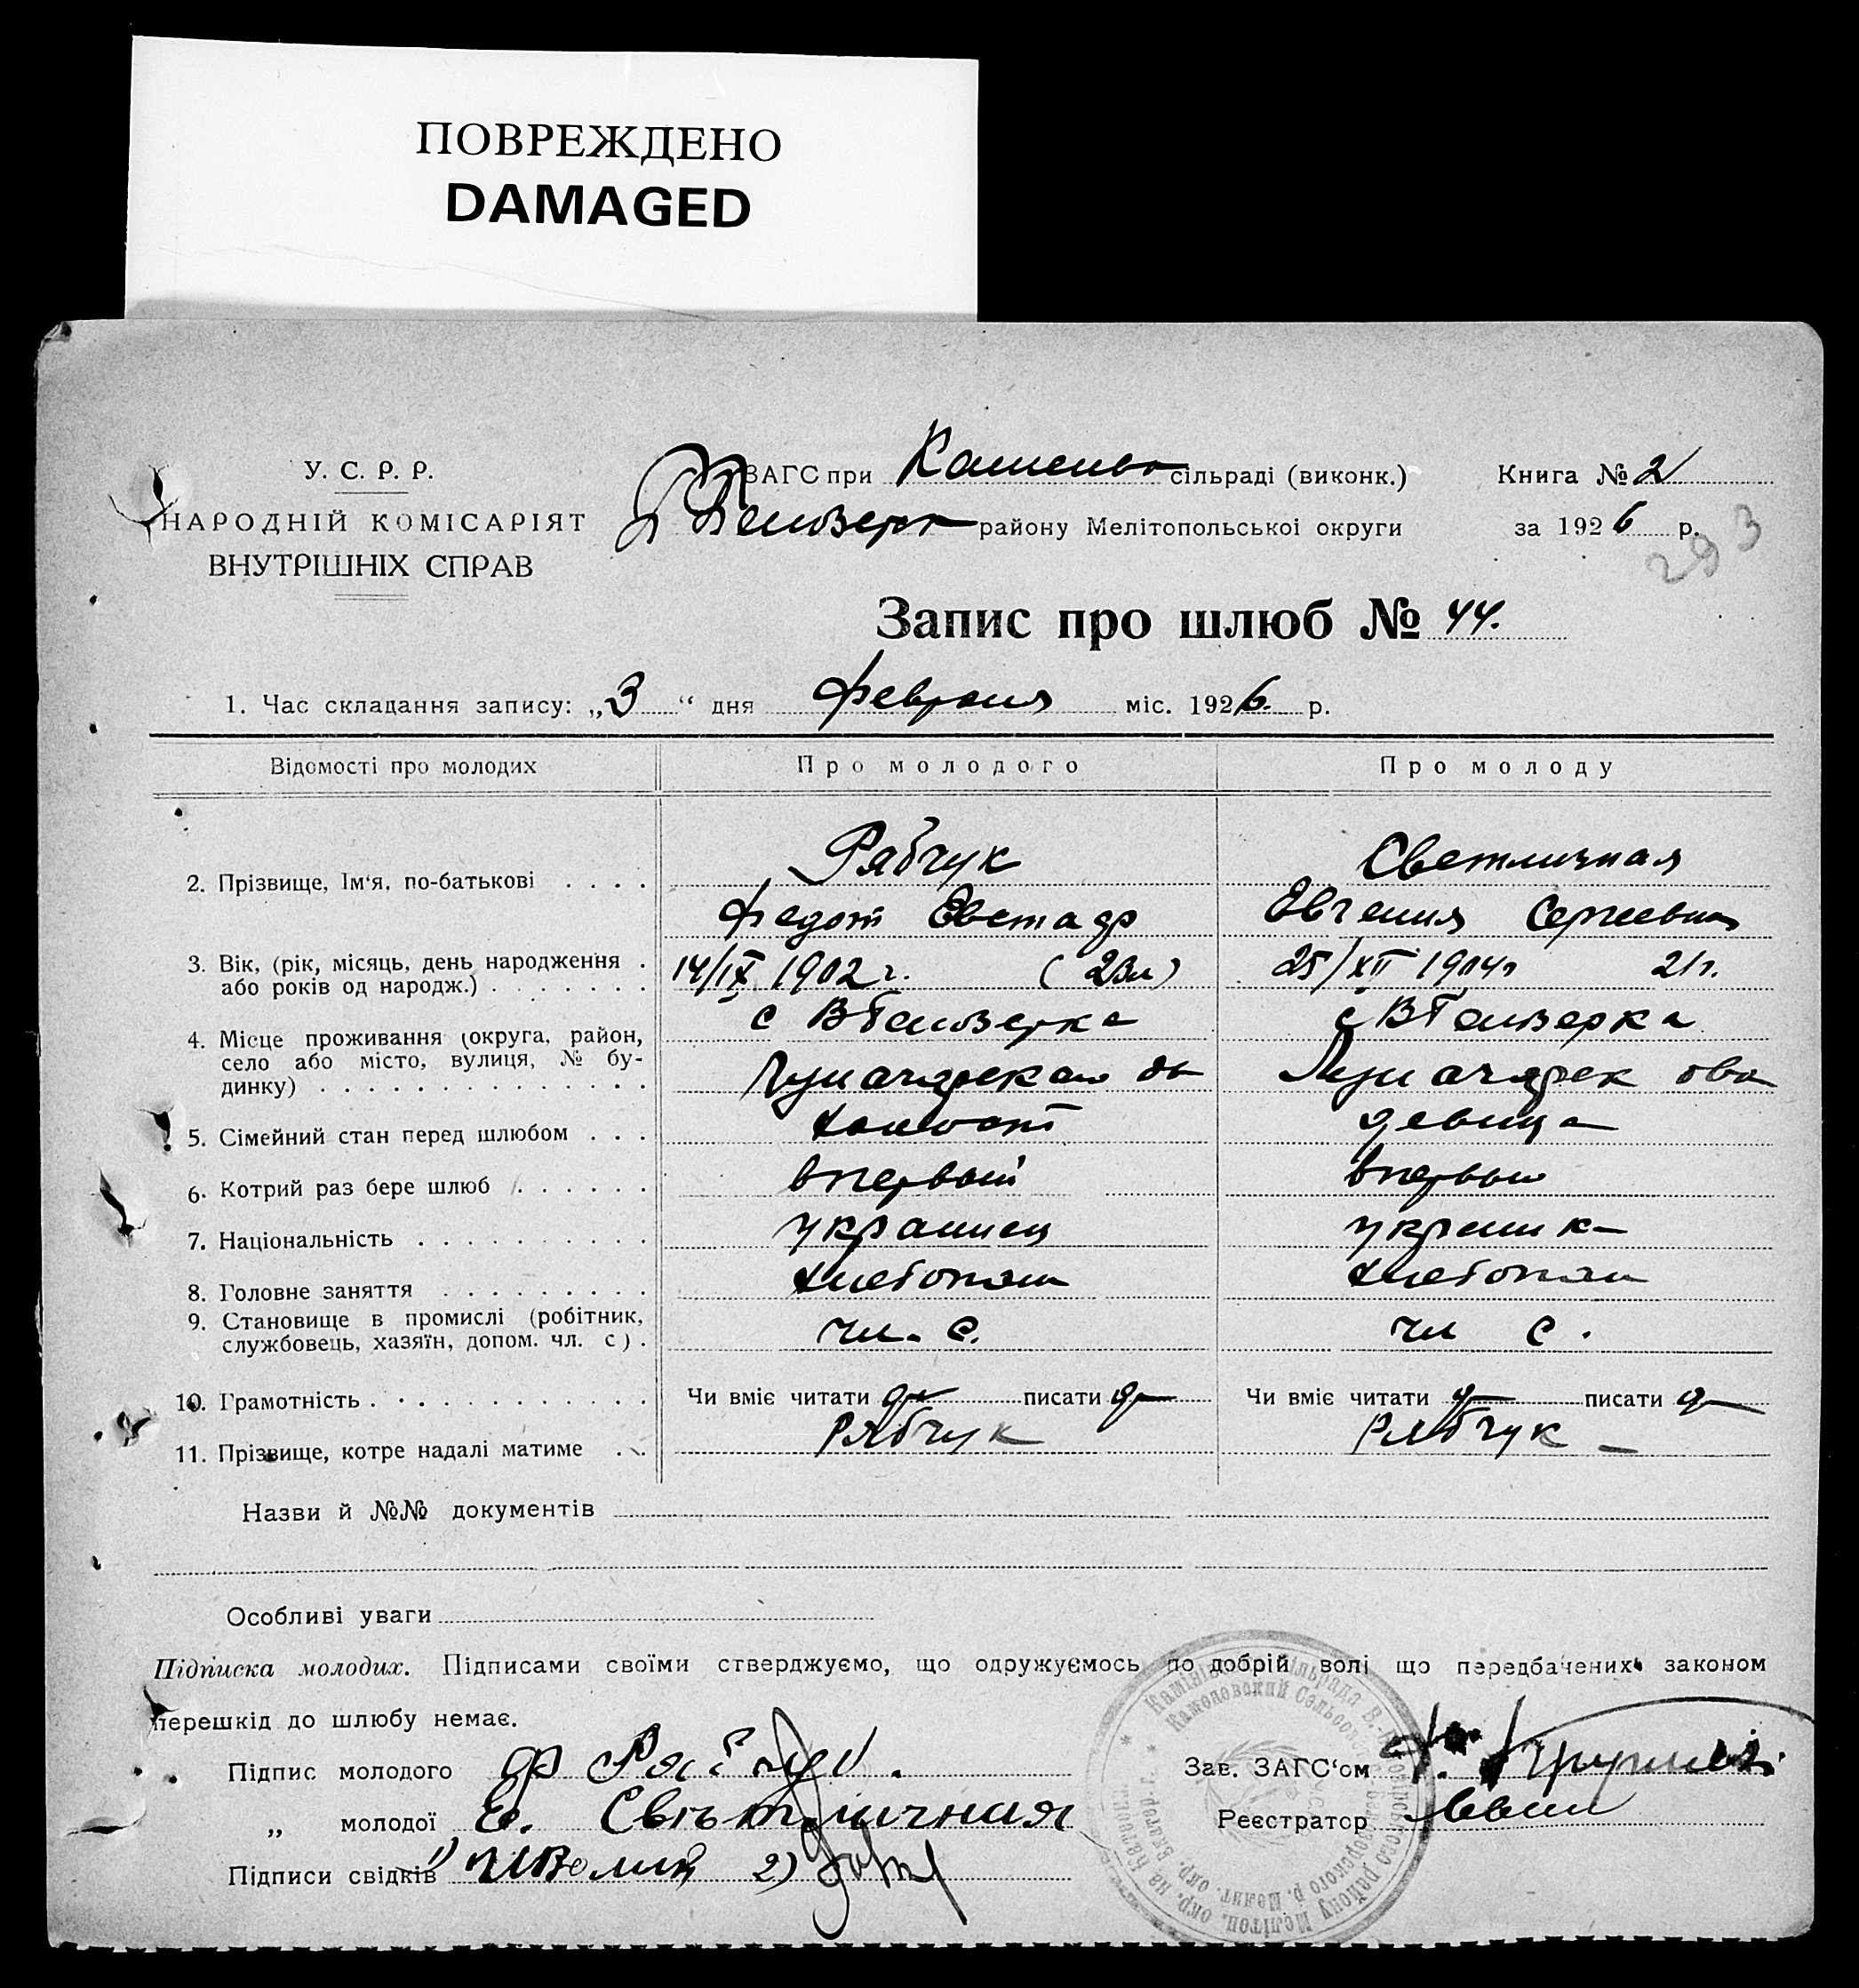 ПОВРЕЖДЕНО
DAMAGED
У. С. Р. Р.
НАРОДНІЙ КОМІСАРІЯТ
ВНУТРІШНІХ СПРАВ
ЗАГС при Каменко сільраді (виконк.)
району Мелітопольської округи
Книга № 2
за 1926 р.
293
Запис про шлюб № 44.
1. Час складання запису: „3“ дня Февраля міс. 1926 р.
Відомості про молодих Про молодого Про молоду
Рябчук Светличная
2. Прізвище, Ім'я, по-батькові . . . .
Федот Евстаф Евгения Сергеевна
3. Вік, (рік, місяць, день народження .
або років од народж.) . . . . . . .
14/IX 1902 г. (23л) 25/XII 1904г 21г.
с ВБелозерка с ВБелозерка
4. Місце проживання (округа, район,
село або місто, вулиця, № бу-
динку) . . . . . . . . . . . . . .
5. Сімейний стан перед шлюбом . . . холост девица
6. Котрий раз бере шлюб . . . . . . впервый впервый
7. Національність . . . . . . . . . . украинец украинк
8. Головне заняття . . . . . . . . . хлебопаш хлебопаш
9. Становище в промислі (робітник,
службовець, хазяїн, допом. чл. с) .
чл. с. чл с.
10. Грамотність . . . . . . . . . . . . Чи вміє читати да писати да Чи вміє читати да писати да
11. Прізвище, котре надалі матиме . . Рябчук Рябчук
Назви й №№ документів
Особливі уваги
Підписка молодих. Підписами своїми стверджуємо, що одружуємось по добрій волі що передбачених законом
перешкід до шлюбу немає.
Підпис молодого Ф Рябчук.
Зав. ЗАГС'ом
„ молодої Е. Свѣтличная
Реєстратор
Підписи свідків 1) 2)